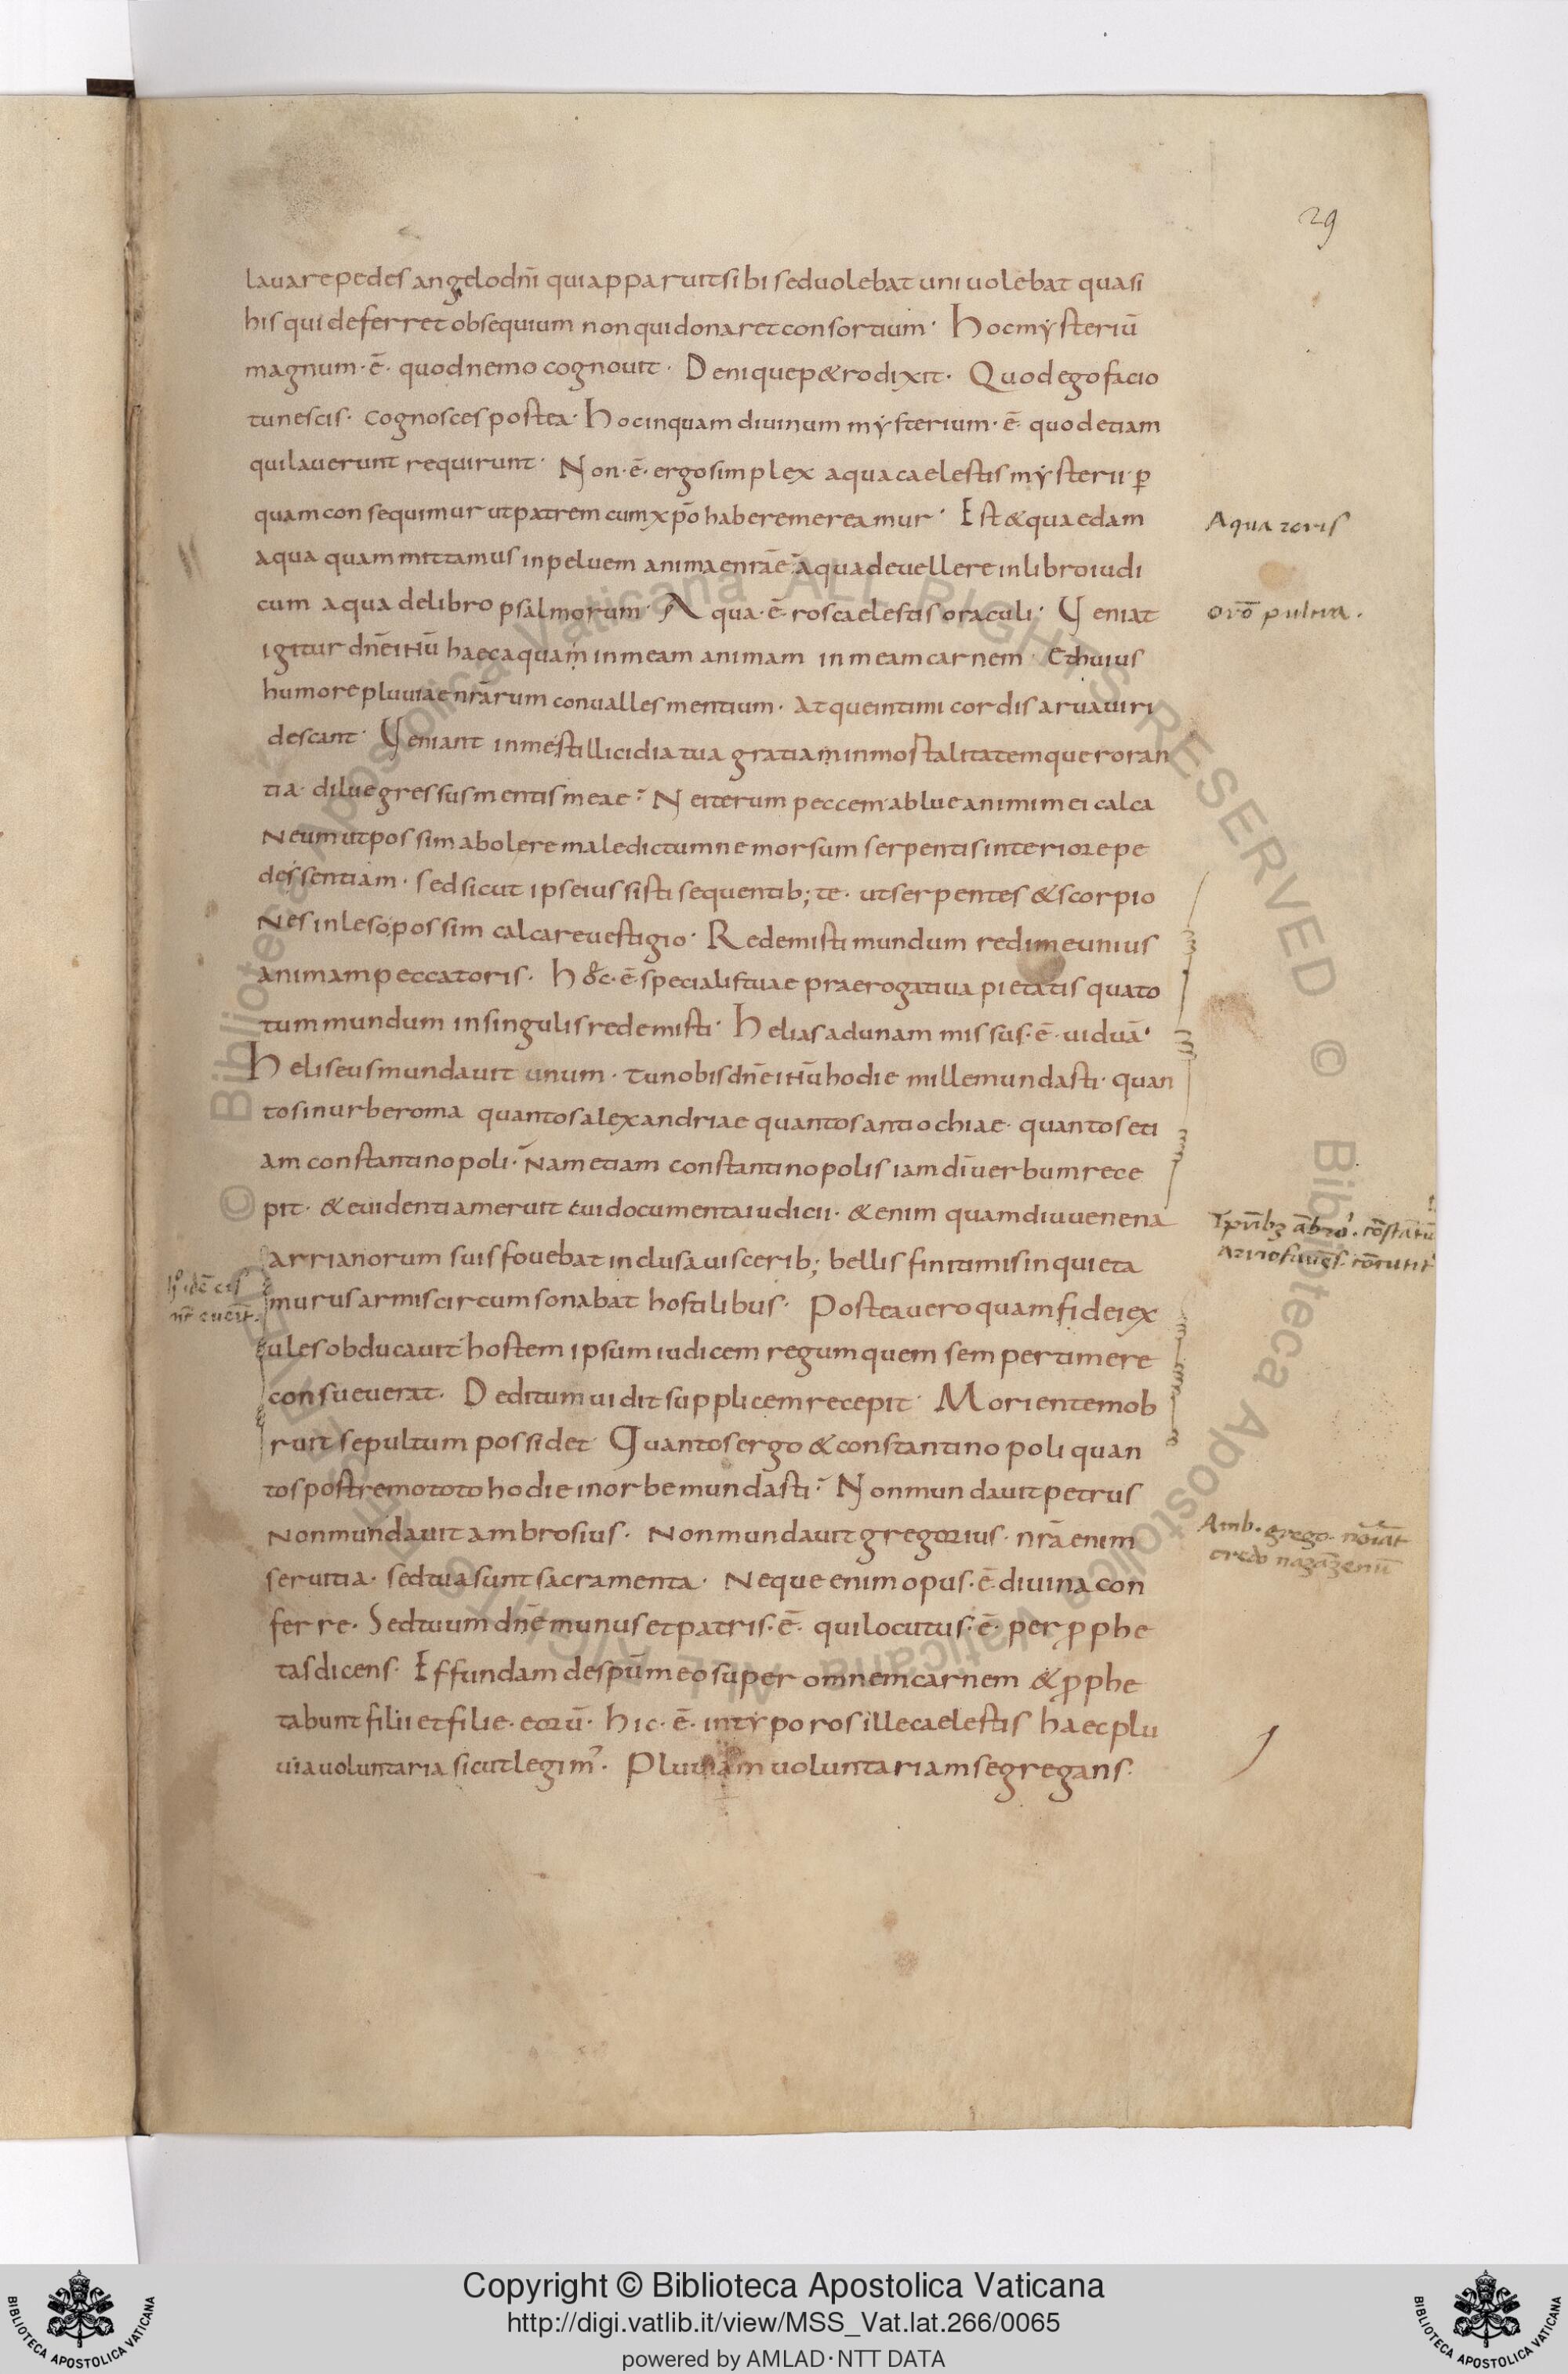 29
lauare pedes angelo dn̄i qui apparuit sibi sed uolebat uni uolebat quasi
his qui deferret obsequium non qui donaret consortium· Hoc mẏsteriū
magnum·ē· quod nemo cognouit· Denique p&ro dixit· Quod ego facio
tu nescis· cognosces postea· Hoc inquam diuinum mẏsterium·ē· quod etiam
qui lauerunt requirunt· Non·ē· ergo simplex aqua caelestis mẏsterii· ꝑ
quam consequimur ut patrem cum xp̄o habere mereamur· Est & quaedam
Aqua roris
aqua quam mittamus in peluem animae nr̄ae· aqua de uellere in libro iudi
cum aqua de libro psalmorum· Aqua·ē· ros caelestis oraculi· Ueniat
orō pulcra.
igitur dn̄e ih̄u haec aqua in meam animam in meam carnem· Et huius
humore pluuiae nr̄arum conualles mentium· atque intimi cordis arua uiri
descant· Ueniant in me stillicidia tua gratiam inmortalitatemque roran
tia· dilue gressus mentis meae· Ne iterum peccem ablue animi mei calca
Neum ut possim abolere maledictum ne morsum serpentis interiore pe
de sentiam· sed sicut ipse iussisti sequentib; te· ut serpentes & scorpio
Nes inleso possim calcare uestigio· Redemisti mundum redime unius
animam peccatoris· Hoc·ē· specialis tuae praerogatiua pietatis qua to
tum mundum in singulis redemisti· Helias ad unam missus·ē· uiduā·
Heliseus mundauit unum· tu nobis dn̄e ih̄u hodie mille mundasti· quan
tos in urbe roma quantos alexandriae quantos antiochiae· quantos eti
am constantinopoli· Nam etiam constantinopolis iam dī uerbum rece
pit· & euidentia meruit tui documenta iudicii· & enim quamdiu uenena
arrianorum suis fouebat inclusa uiscerib; bellis finitimis inquieta
murus armis circumsonabat hostilibus· Postea uero quam fidei ex
ules obducauit hostem ipsum iudicem regum quem semper timere
consueuerat· Deditum uidit supplicem recepit· Morientem ob
ruit sepultum possidet· Quantos ergo & constantinopoli quan
tos postremo toto hodie in orbe mundasti· Non mundauit petrus
Non mundauit ambrosius· Non mundauit gregorius· nr̄a enim
Amb· grego· noīat
credo nazāzenū
seruitia· sed tua sunt sacramenta· Neque enim opus·ē· diuina con
ferre· Sed tuum dn̄e munus et patris·ē· qui locutus·ē· per ꝓphe
tas dicens· Effundam de spū meo super omnem carnem & ꝓphe
tabunt filii et filie· eorū· hic·ē· in tẏpo ros ille caelestis haec plu
uia uoluntaria sicut legim̉· Pluuiam uoluntariam segregans·
Copyright © Biblioteca Apostolica Vaticana
http://digi.vatlib.it/view/MSS_Vat.lat.266/0065
powered by AMLAD·NTT DATA
BIBLIOTECA APOSTOLICA VATICANA
BIBLIOTECA APOSTOLICA VATICANA